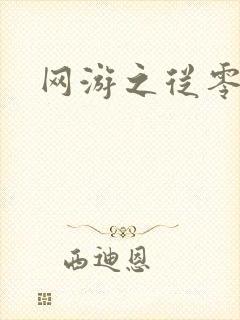 网游之从零
西迪恩